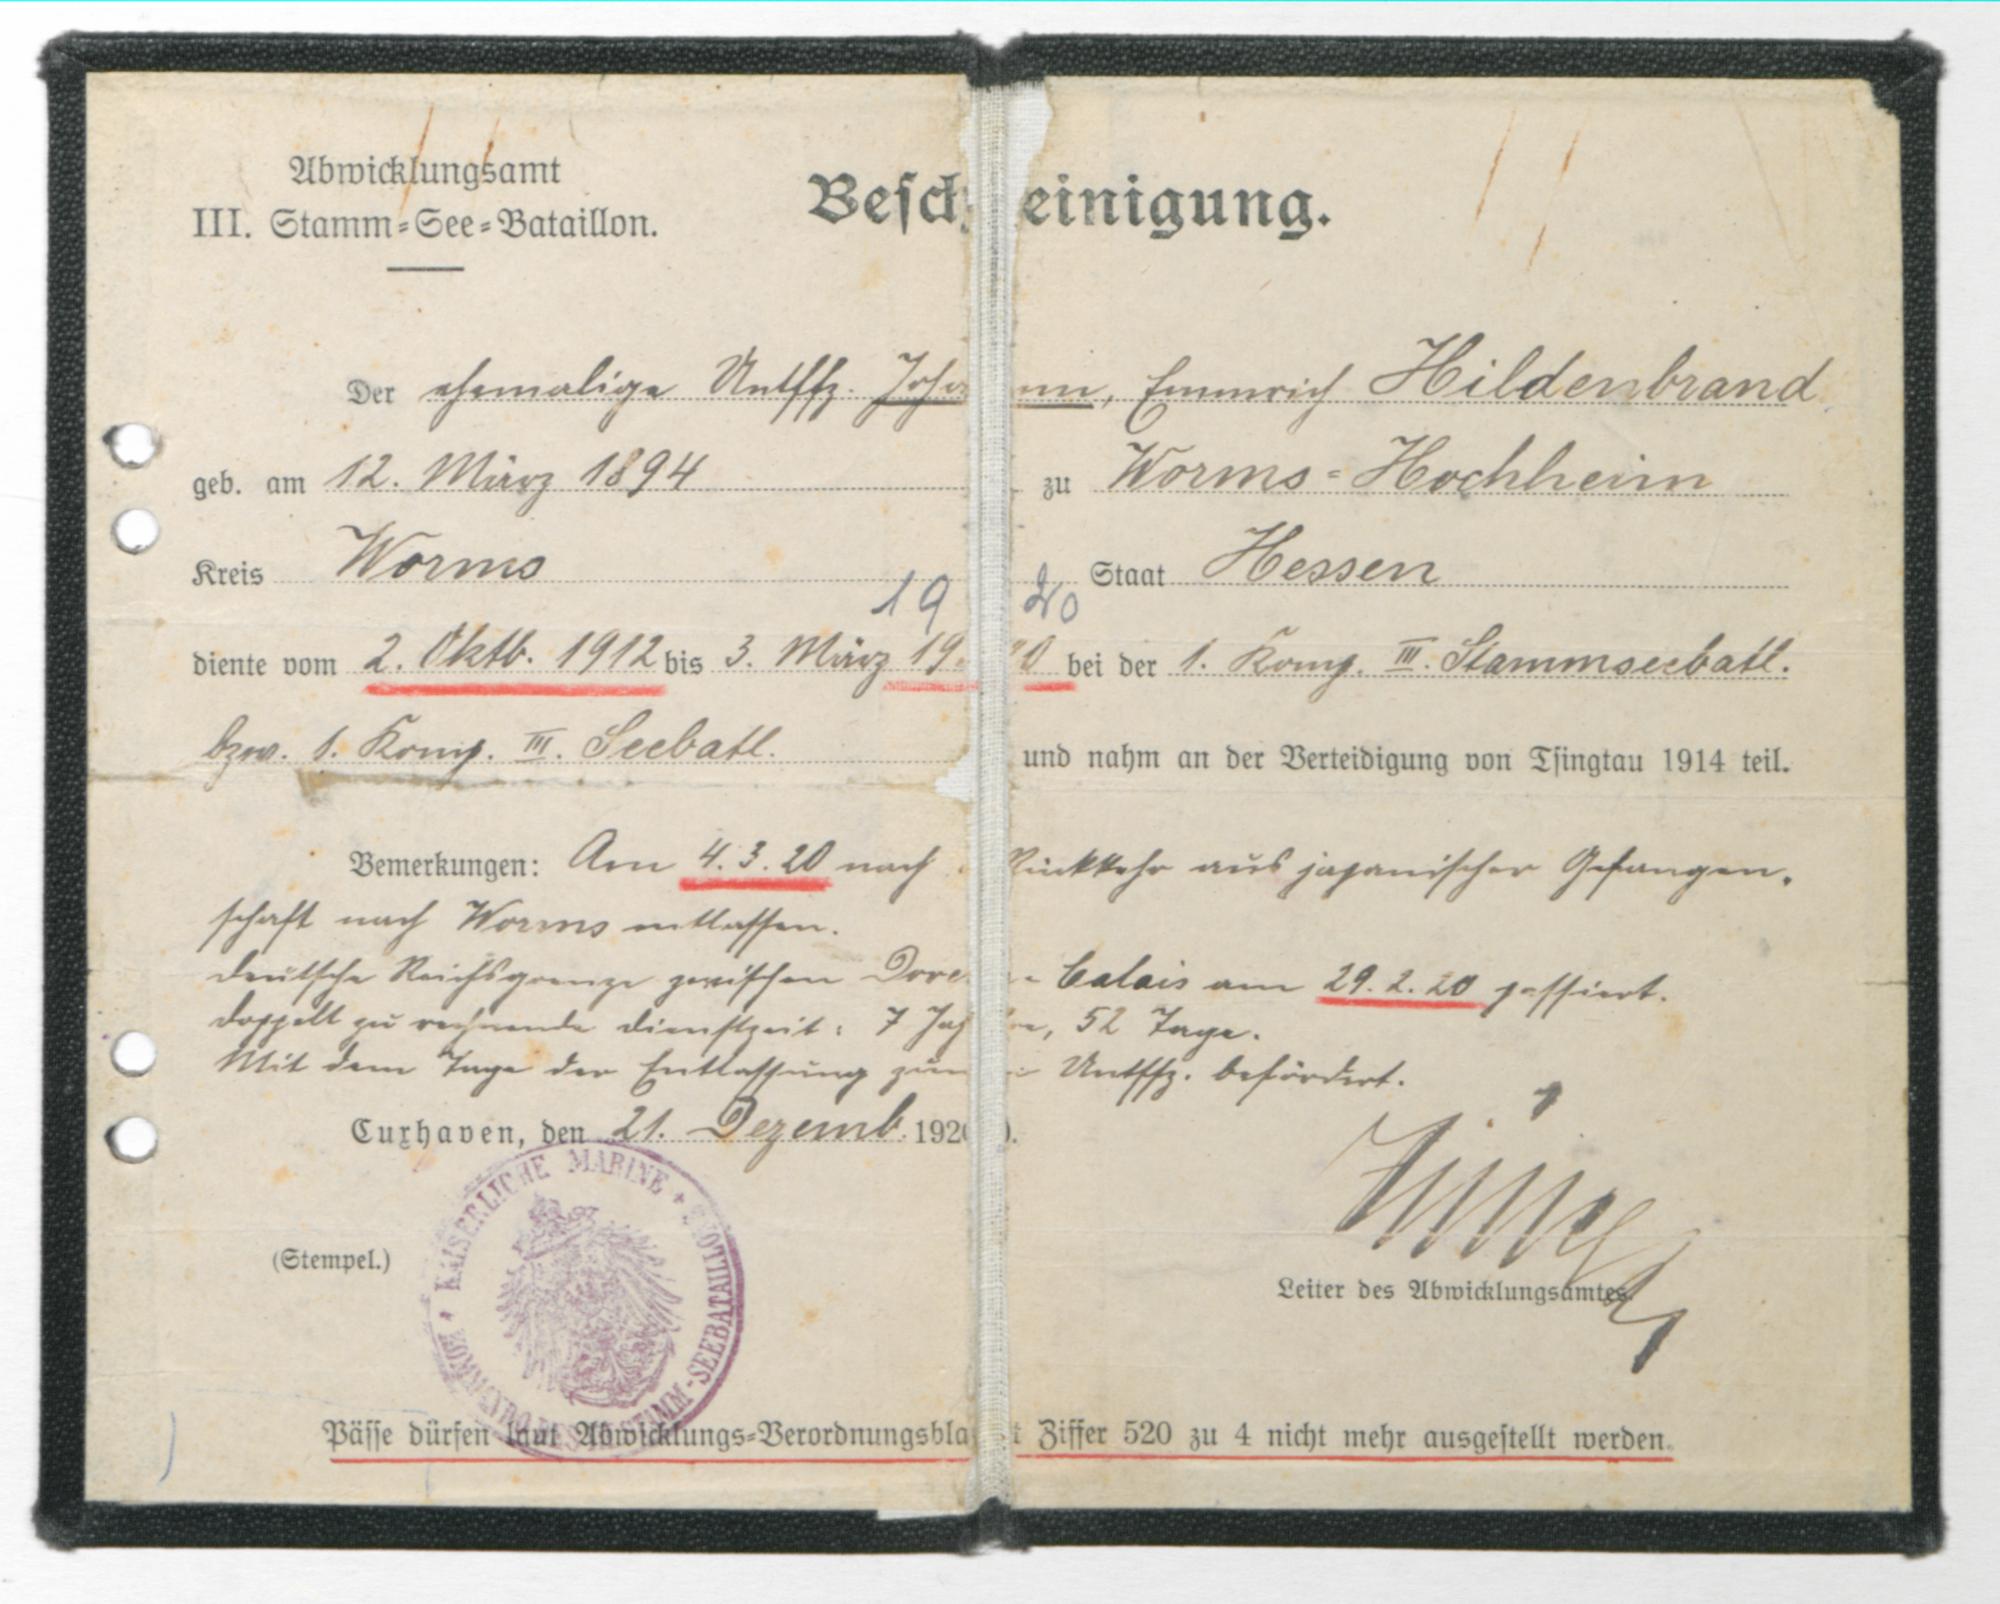 Abwicklungsamt
III. Stamm-See-Bataillon.
Bescheinigung.
Der ehemalige Untffz. Johann, Emmrich Hildenbrand
geb. am 12. März 1894 zu Worms-Hochheim
Kreis Worms Staat Hessen
19 20
diente vom 2. Oktb. 1912 bis 3. März 1920 bei der 1. Komp. III. Stammseebatl.
bzw. 1. Komp. III. Seebatl. und nahm an der Verteidigung von Tsingtau 1914 teil.
Bemerkungen: Am 4.3.20 nach Rückkehr aus japanischer Gefangen-
schaft nach Worms entlassen.
Deutsche Reichsgrenze zwischen Dover - Calais am 29.2.20 passiert.
Doppelt zu rechnende Dienstzeit: 7 Jahre, 52 Tage.
Mit dem Tage der Entlassung zum Untffz. befördert.
Cuxhaven, den 21. Dezemb. 1920.
KAISERLICHE MARINE
KOMMANDO STAMM-SEEBATAILLONS
(Stempel.)
Leiter des Abwicklungsamtes.
Pässe dürfen laut Abwicklungs-Verordnungsblatt Ziffer 520 zu 4 nicht mehr ausgestellt werden.